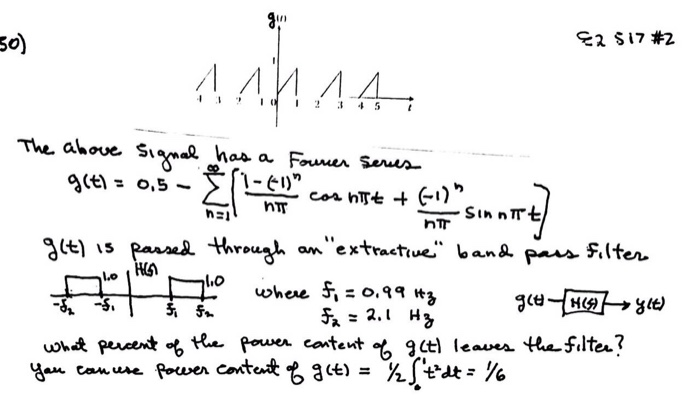 50)
g(t)
E2 S17 #2
1
4 3 2 1 0 1 2 3 4 5 t
The above signal has a Fourier Series
g(t) = 0.5 - ∞ Σ n=1 [ 1-(-1)^n / nπ cos nπt + (-1)^n / nπ Sin nπt ]
g(t) is passed through an "extractive" band pass filter
H(f) 1.0 1.0
-f₂ -f₁ f₁ f₂
where f₁ = 0.99 Hz
f₂ = 2.1 Hz
g(t) H(f) y(t)
What percent of the power content of g(t) leaves the filter?
You can use power content of g(t) = 1/2 ∫₀¹ t²dt = 1/6